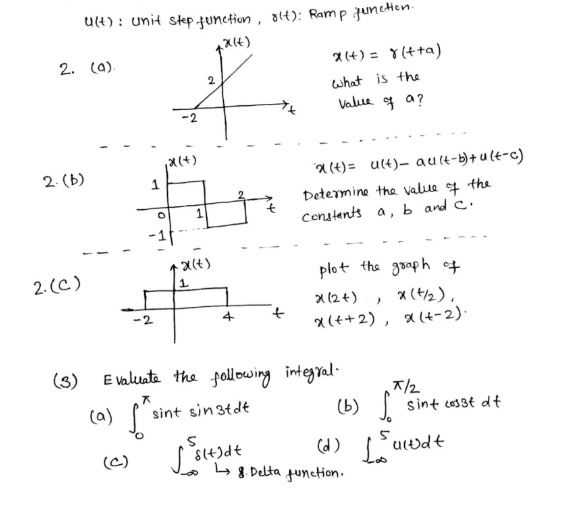 u(t) : unit step function , r(t): Ramp function.
2. (a).
x(t)
2
-2
t
x(t) = r(t+a)
what is the
value of a?
2.(b)
x(t)
1
0
1
2
t
-1
x(t)= u(t)- au(t-b)+u(t-c)
Determine the value of the
constants a, b and c.
2.(C)
x(t)
1
-2
4
t
plot the graph of
x(2t) , x(t/2),
x(t+2) , x(t-2).
(3) Evaluate the following integral.
(a) ∫₀^π sint sin3tdt
(b) ∫₀^π/2 sint cos3t dt
(c) ∫₋∞^5 δ(t)dt
↳ δ. Delta function.
(d) ∫₋∞^5 u(t)dt